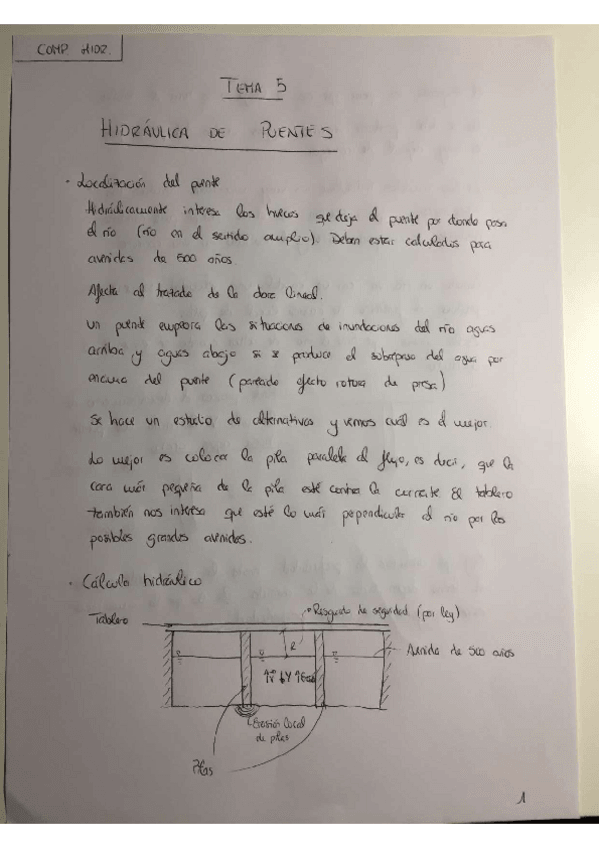 COMP HIDR.
TEMA 5
HIDRÁULICA DE PUENTES
· Localización del puente
Hidráulicamente interesa los huecos que deja el puente por donde pasa
el río (río en el sentido amplio). Deben estar calculados para
avenidas de 500 años
Afecta al trazado de la obra lineal.
Un puente empeora las situaciones de inundaciones del río aguas
arriba y aguas abajo si se produce el sobrepaso del agua por
encima del puente (parecido efecto rotura de presa)
Se hace un estudio de alternativas y vemos cuál es el mejor.
Lo mejor es colocar la pila paralela al flujo, es decir, que la
cara más pequeña de la pila esté contra la corriente. El tablero
también nos interesa que esté lo más perpendicular al río por las
posibles grandes avenidas.
· Cálculo hidráulico
Tablero
Resguardo de seguridad (por ley)
R
Avenida de 500 años
Erosión local
de pilas
Pilas
1